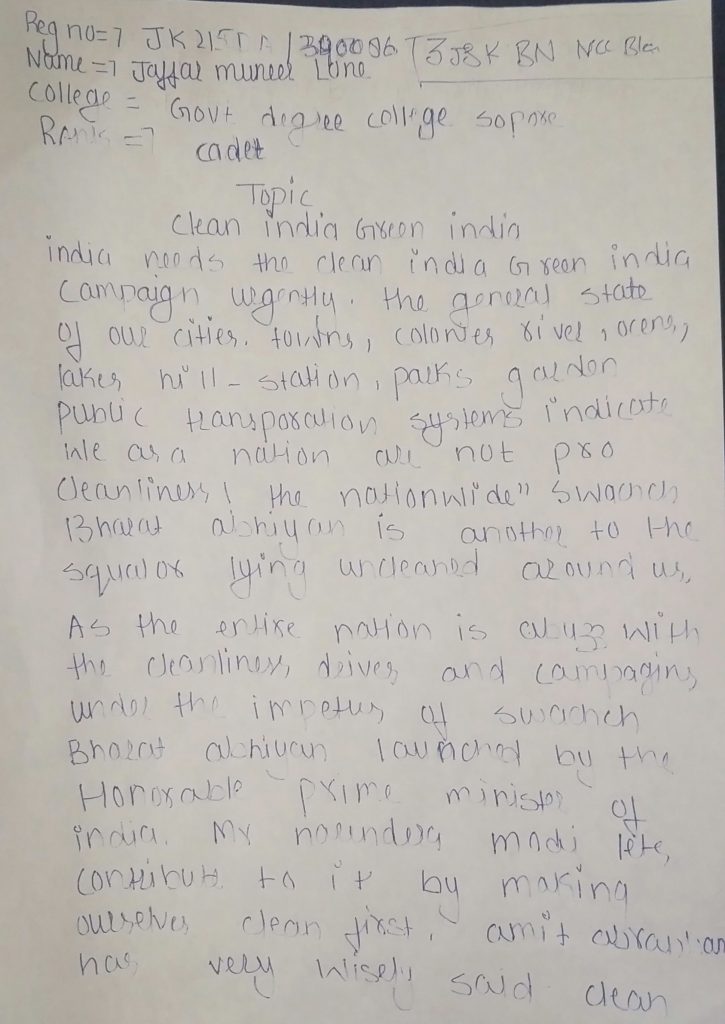 Reg no=7 JK21SDA/390096 [3J&K BN NCC Bla
Name =7 Jaffar muneer Lone
College = Govt degree college sopore
Rank =7 cadet
Topic
Clean india Green india
india needs the clean india Green india
Campaign urgently. the general state
of our cities. towns, colonies river, ocens,
lakes hill-station, parks garden
public transporation systems indicate
we as a nation are not pro
cleanliness! the nationwide" swachch
Bharat abhiyan is another to the
squalor lying uncleaned around us,
As the entire nation is abuzz with
the cleanliness drives and campagins
under the impetus of swachch
Bharat abhiyan launched by the
Honorable prime minister of
india. Mr narendera modi lets,
contribut to it by making
ourselves clean first. amit
has very wisely said clean